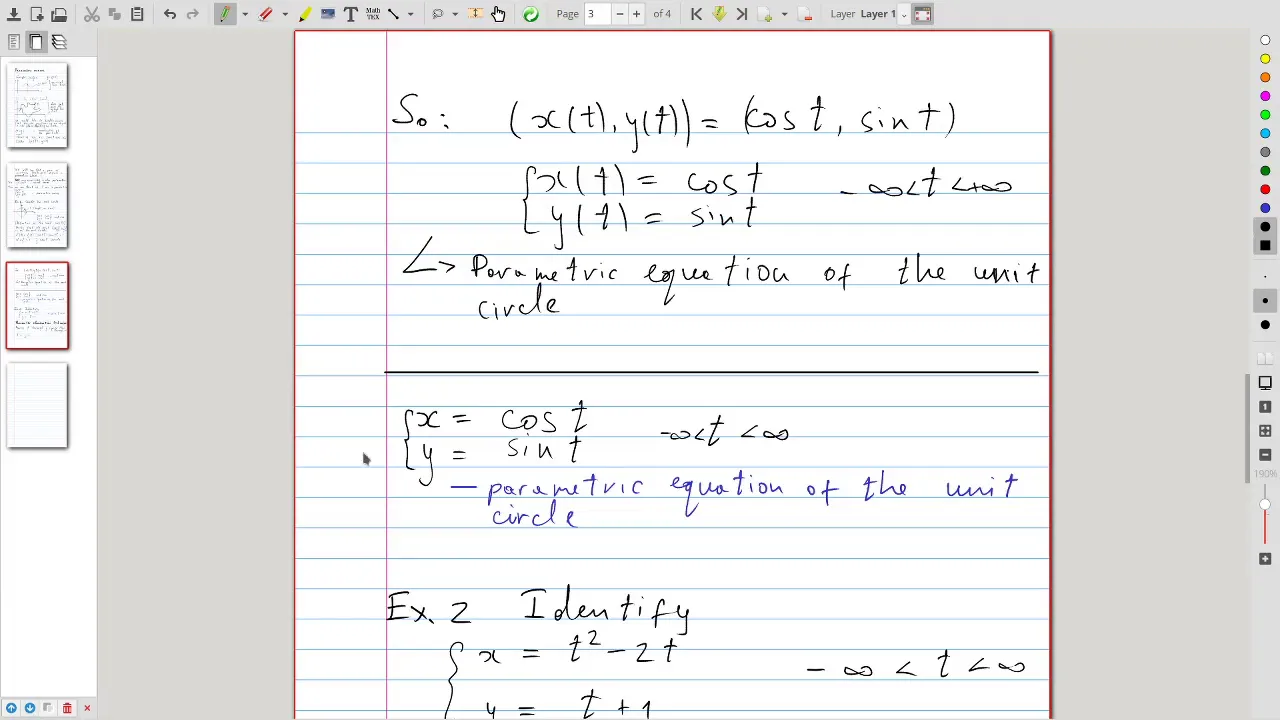 Page 3 of 4 Layer Layer 1
So: (x(t), y(t)) = (cos t, sin t)
x(t) = cos t -∞<t<+∞
y(t) = sin t
Parametric equation of the unit
circle
x = cos t -∞<t<∞
y = sin t
— parametric equation of the unit
circle
Ex. 2 Identify
x = t² - 2t -∞ < t < ∞
y = t + 1
190%